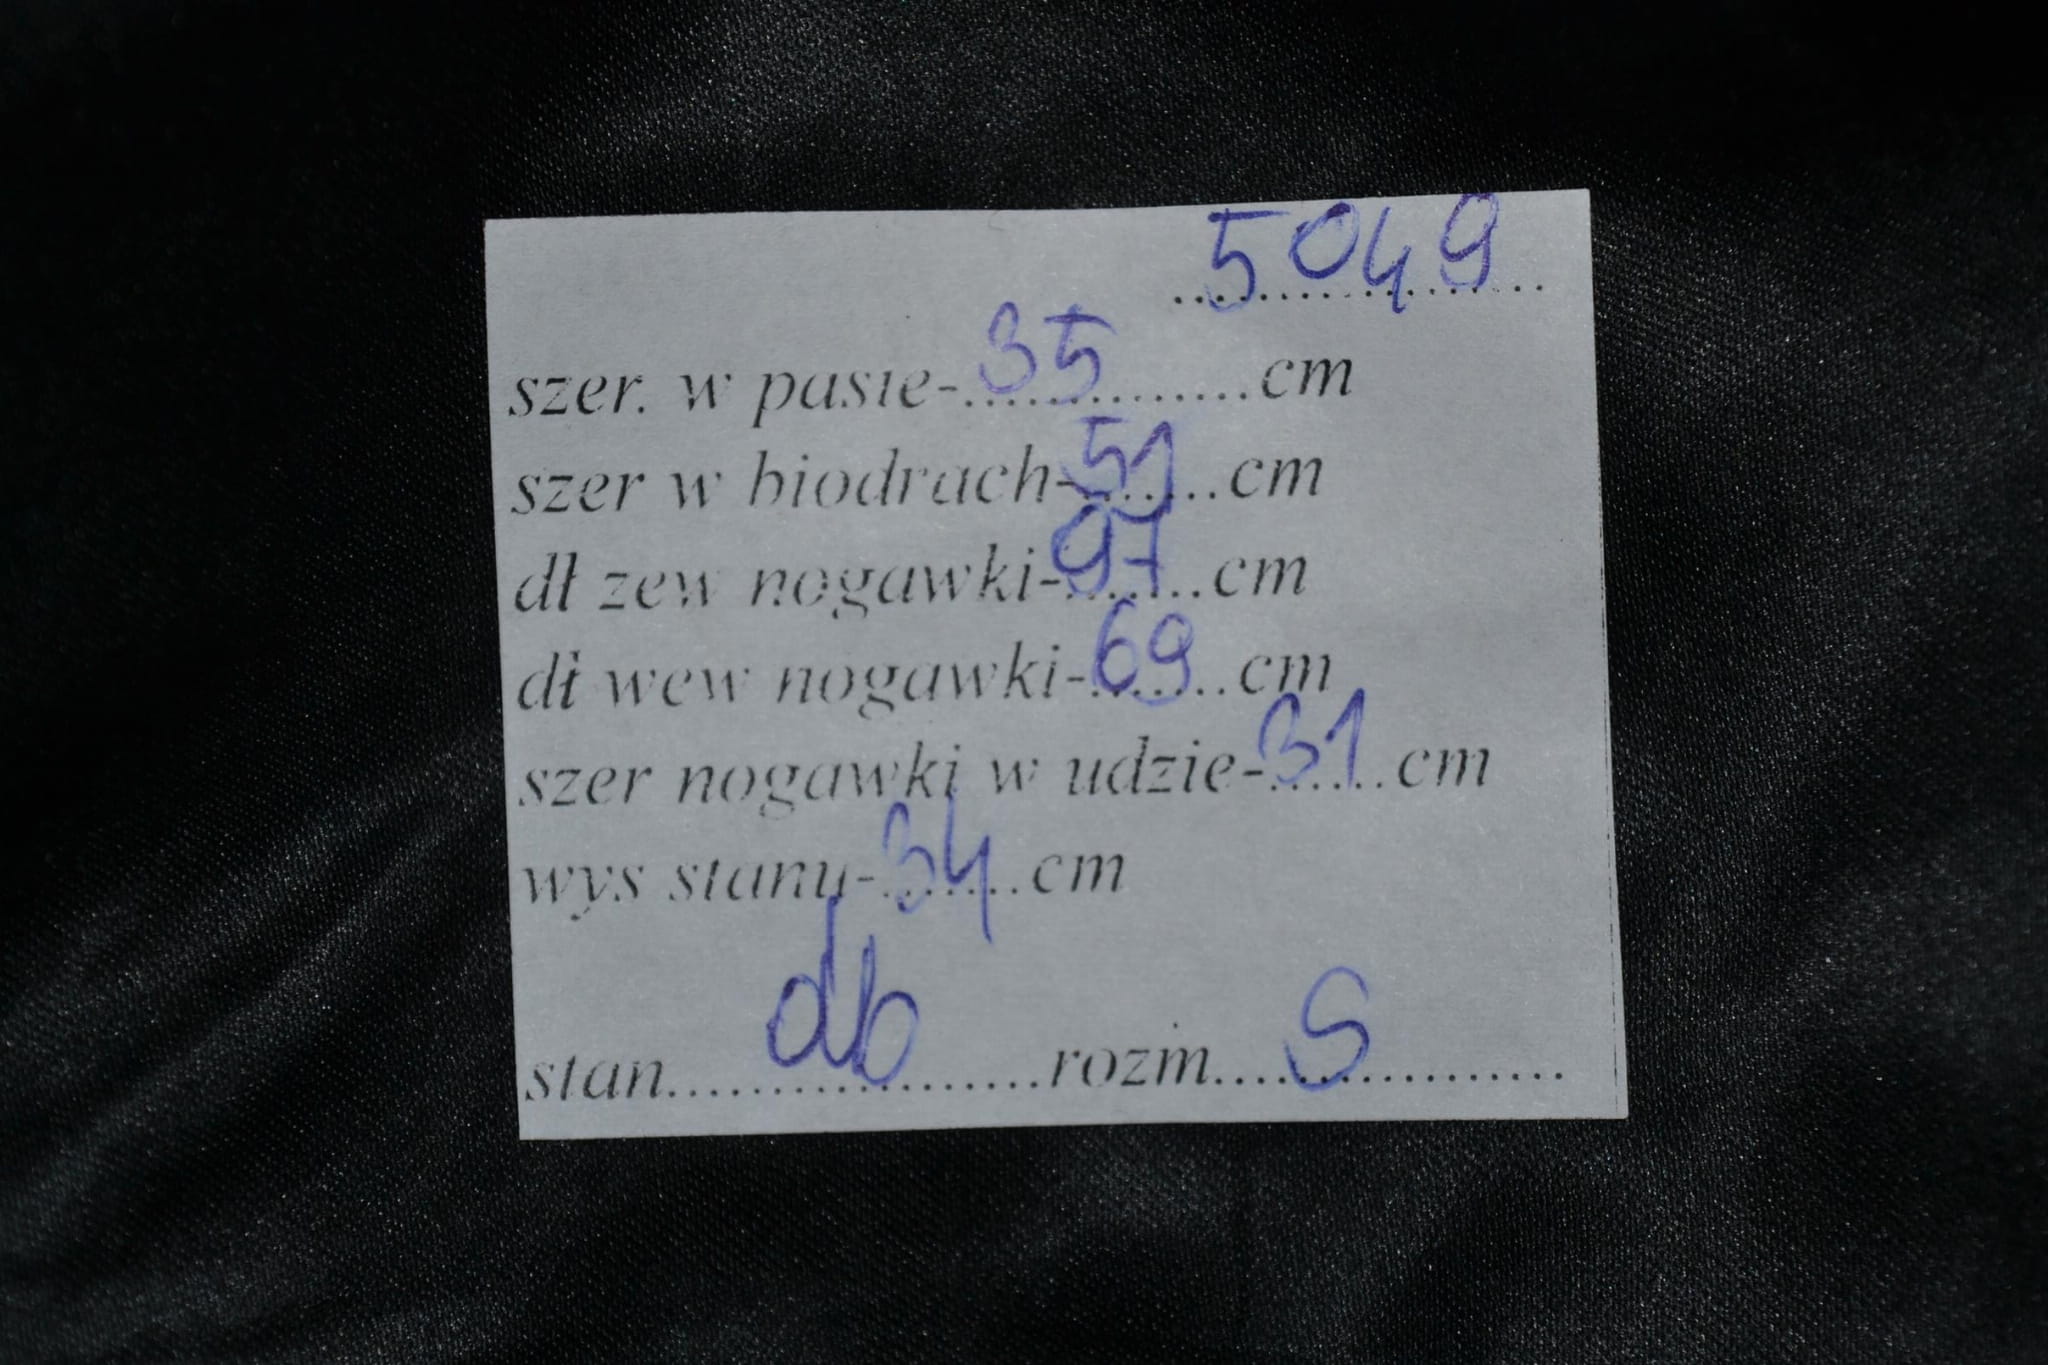 5049
szer. w pasie-35..............cm
szer w biodrach-51.......cm
dł zew nogawki-97.......cm
dł wew nogawki-69.......cm
szer nogawki w udzie-31......cm
wys stanu-34.......cm
stan......db............rozm....S.............